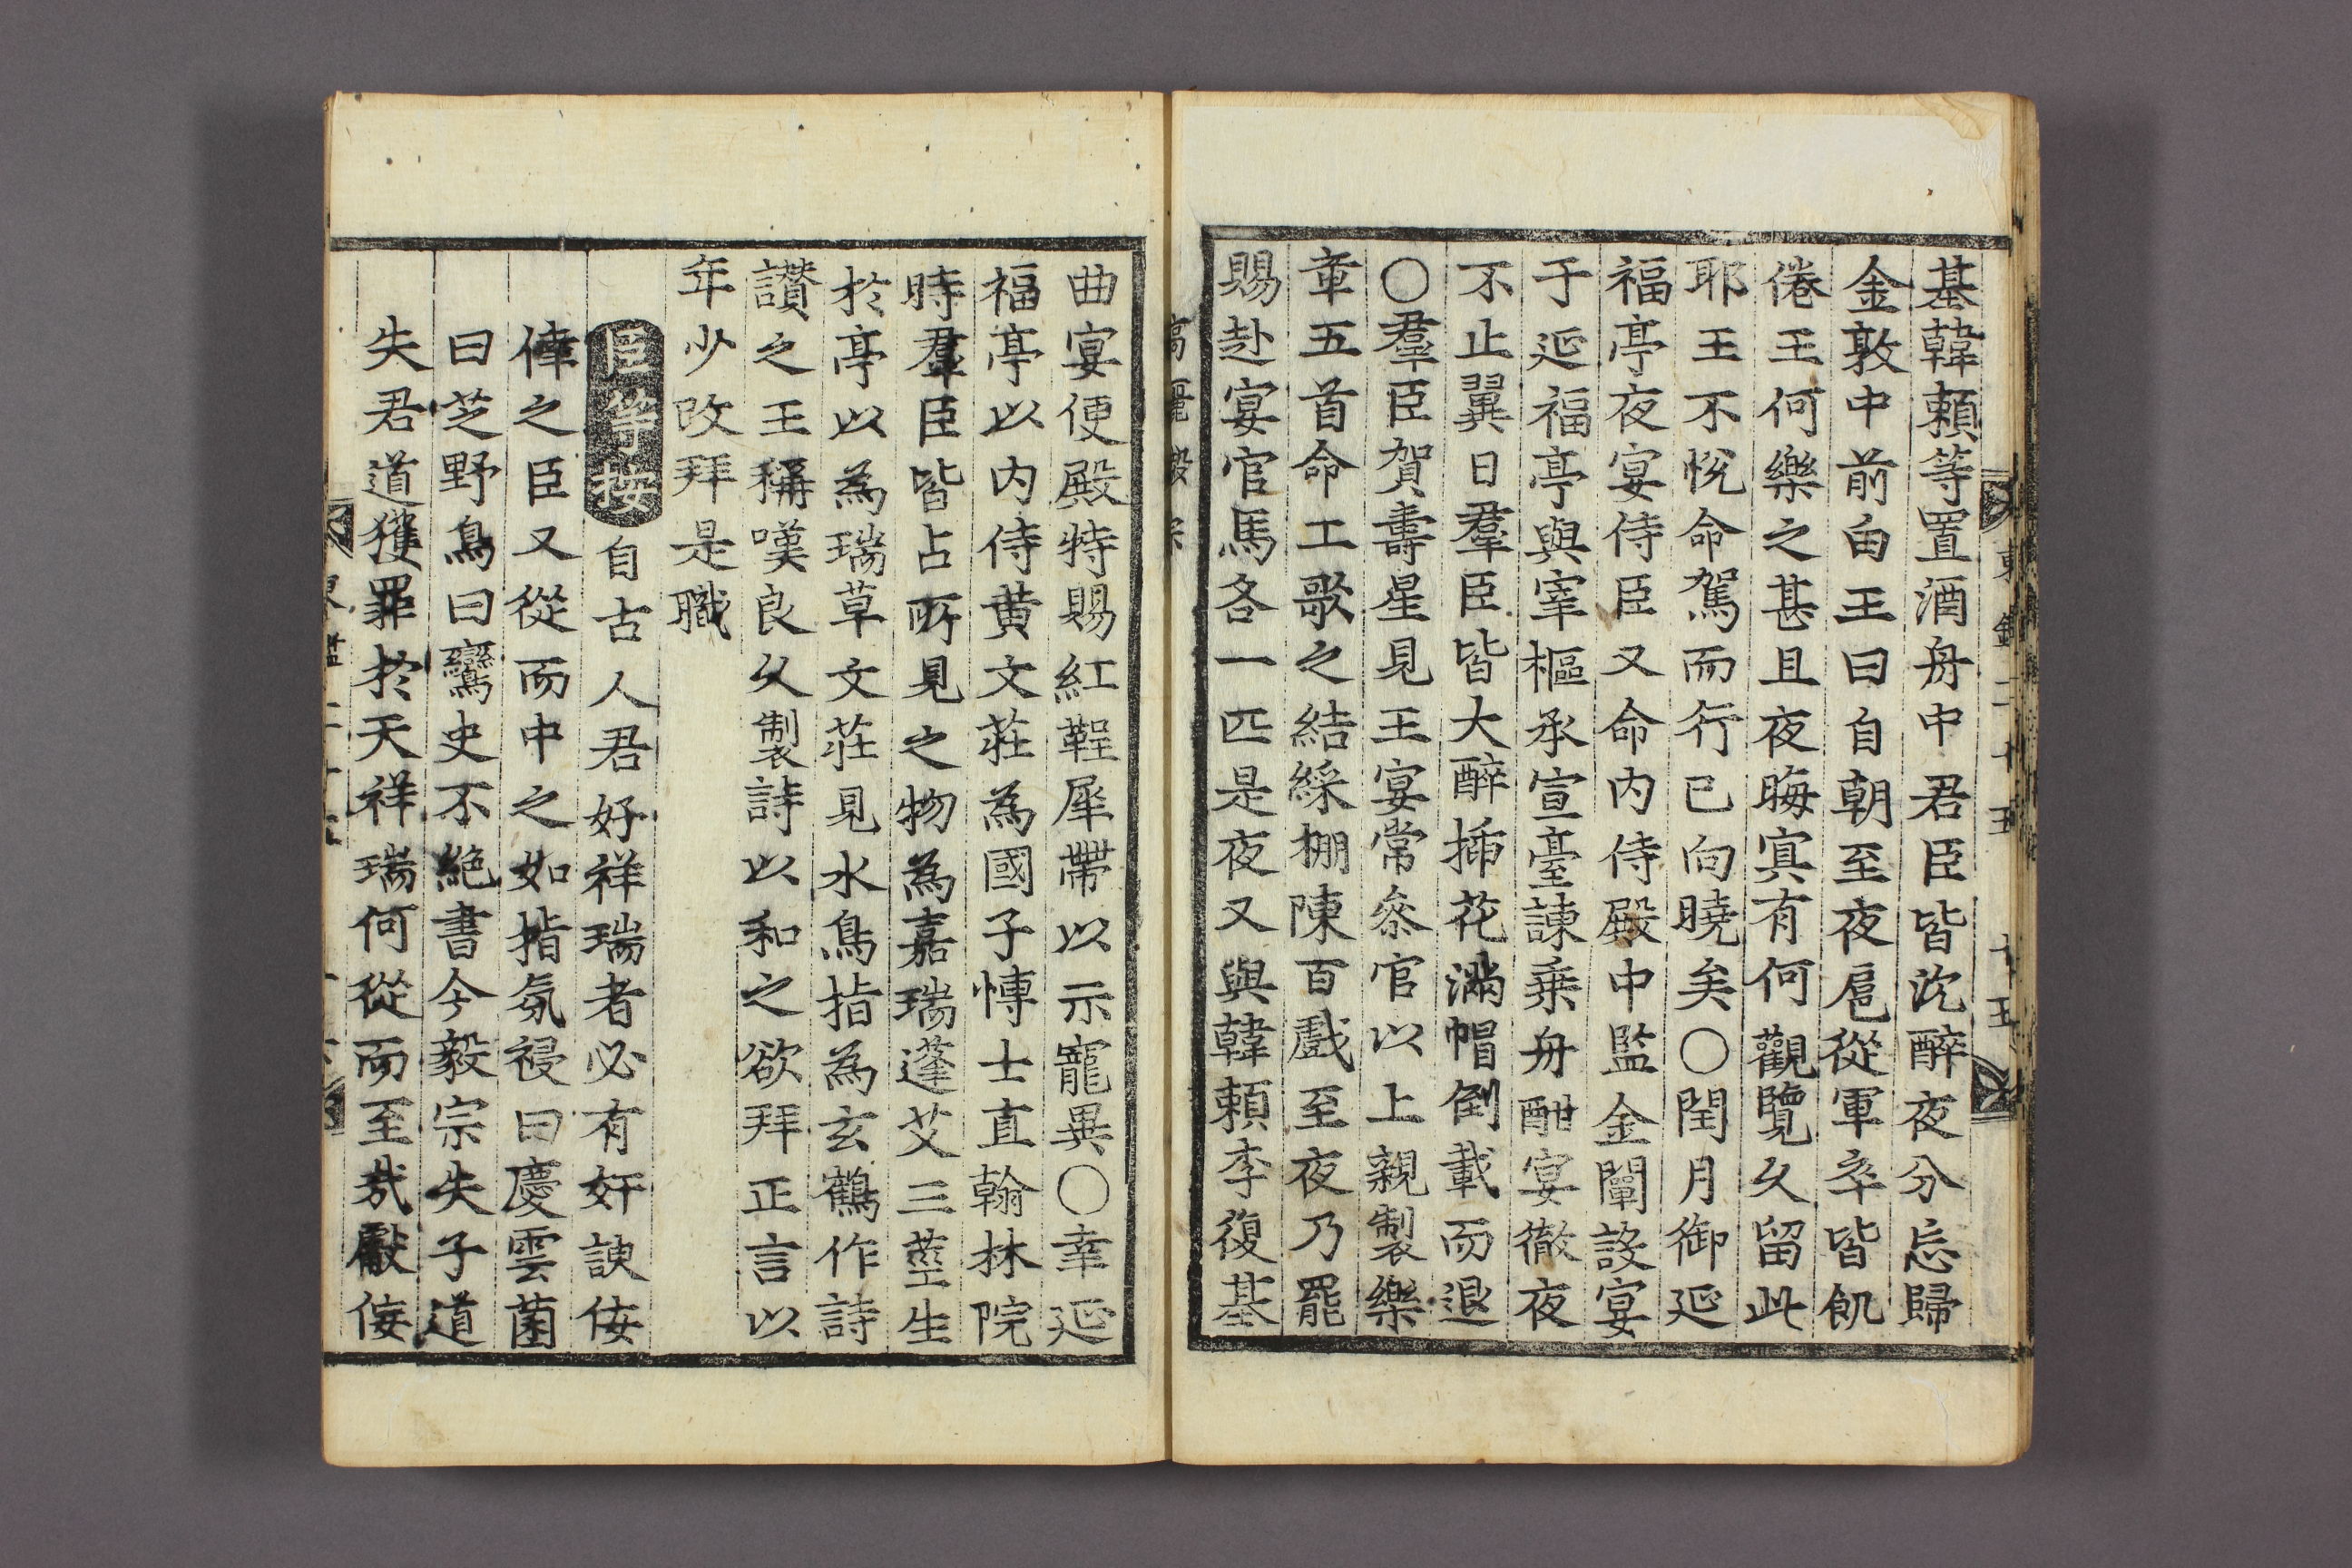 基韓賴等置酒舟中君臣皆沈醉夜分忘歸
金敦中前白王曰自朝至夜扈從軍卒皆飢
倦王何樂之甚且夜晦冥有何觀覽久留此
耶王不悅命駕而行已向曉矣○閏月御延
福亭夜宴侍臣又命内侍殿中監金闡設宴
于延福亭與宰樞承宣臺諫乘舟酣宴徹夜
不止翼日羣臣皆大醉揷花滿帽倒載而退
○羣臣賀壽星見王宴常叅官以上親製樂
章五首命工歌之結綵棚陳百戲至夜乃罷
賜赴宴官馬各一匹是夜又與韓賴李復基
高麗毅宗
曲宴便殿特賜紅鞓犀帶以示寵異○幸延
福亭以内侍黄文莊為國子博士直翰林院
時羣臣皆占所見之物為嘉瑞蓬艾三莖生
於亭以為瑞草文莊見水鳥指為玄鶴作詩
讃之王稱嘆良久製詩以和之欲拜正言以
年少改拜是職
臣等按自古人君好祥瑞者必有奸諛佞
倖之臣又從而中之如指氛祲曰慶雲菌
曰芝野鳥曰鸞史不絶書今毅宗失子道
失君道獲罪於天祥瑞何從而至哉獻佞